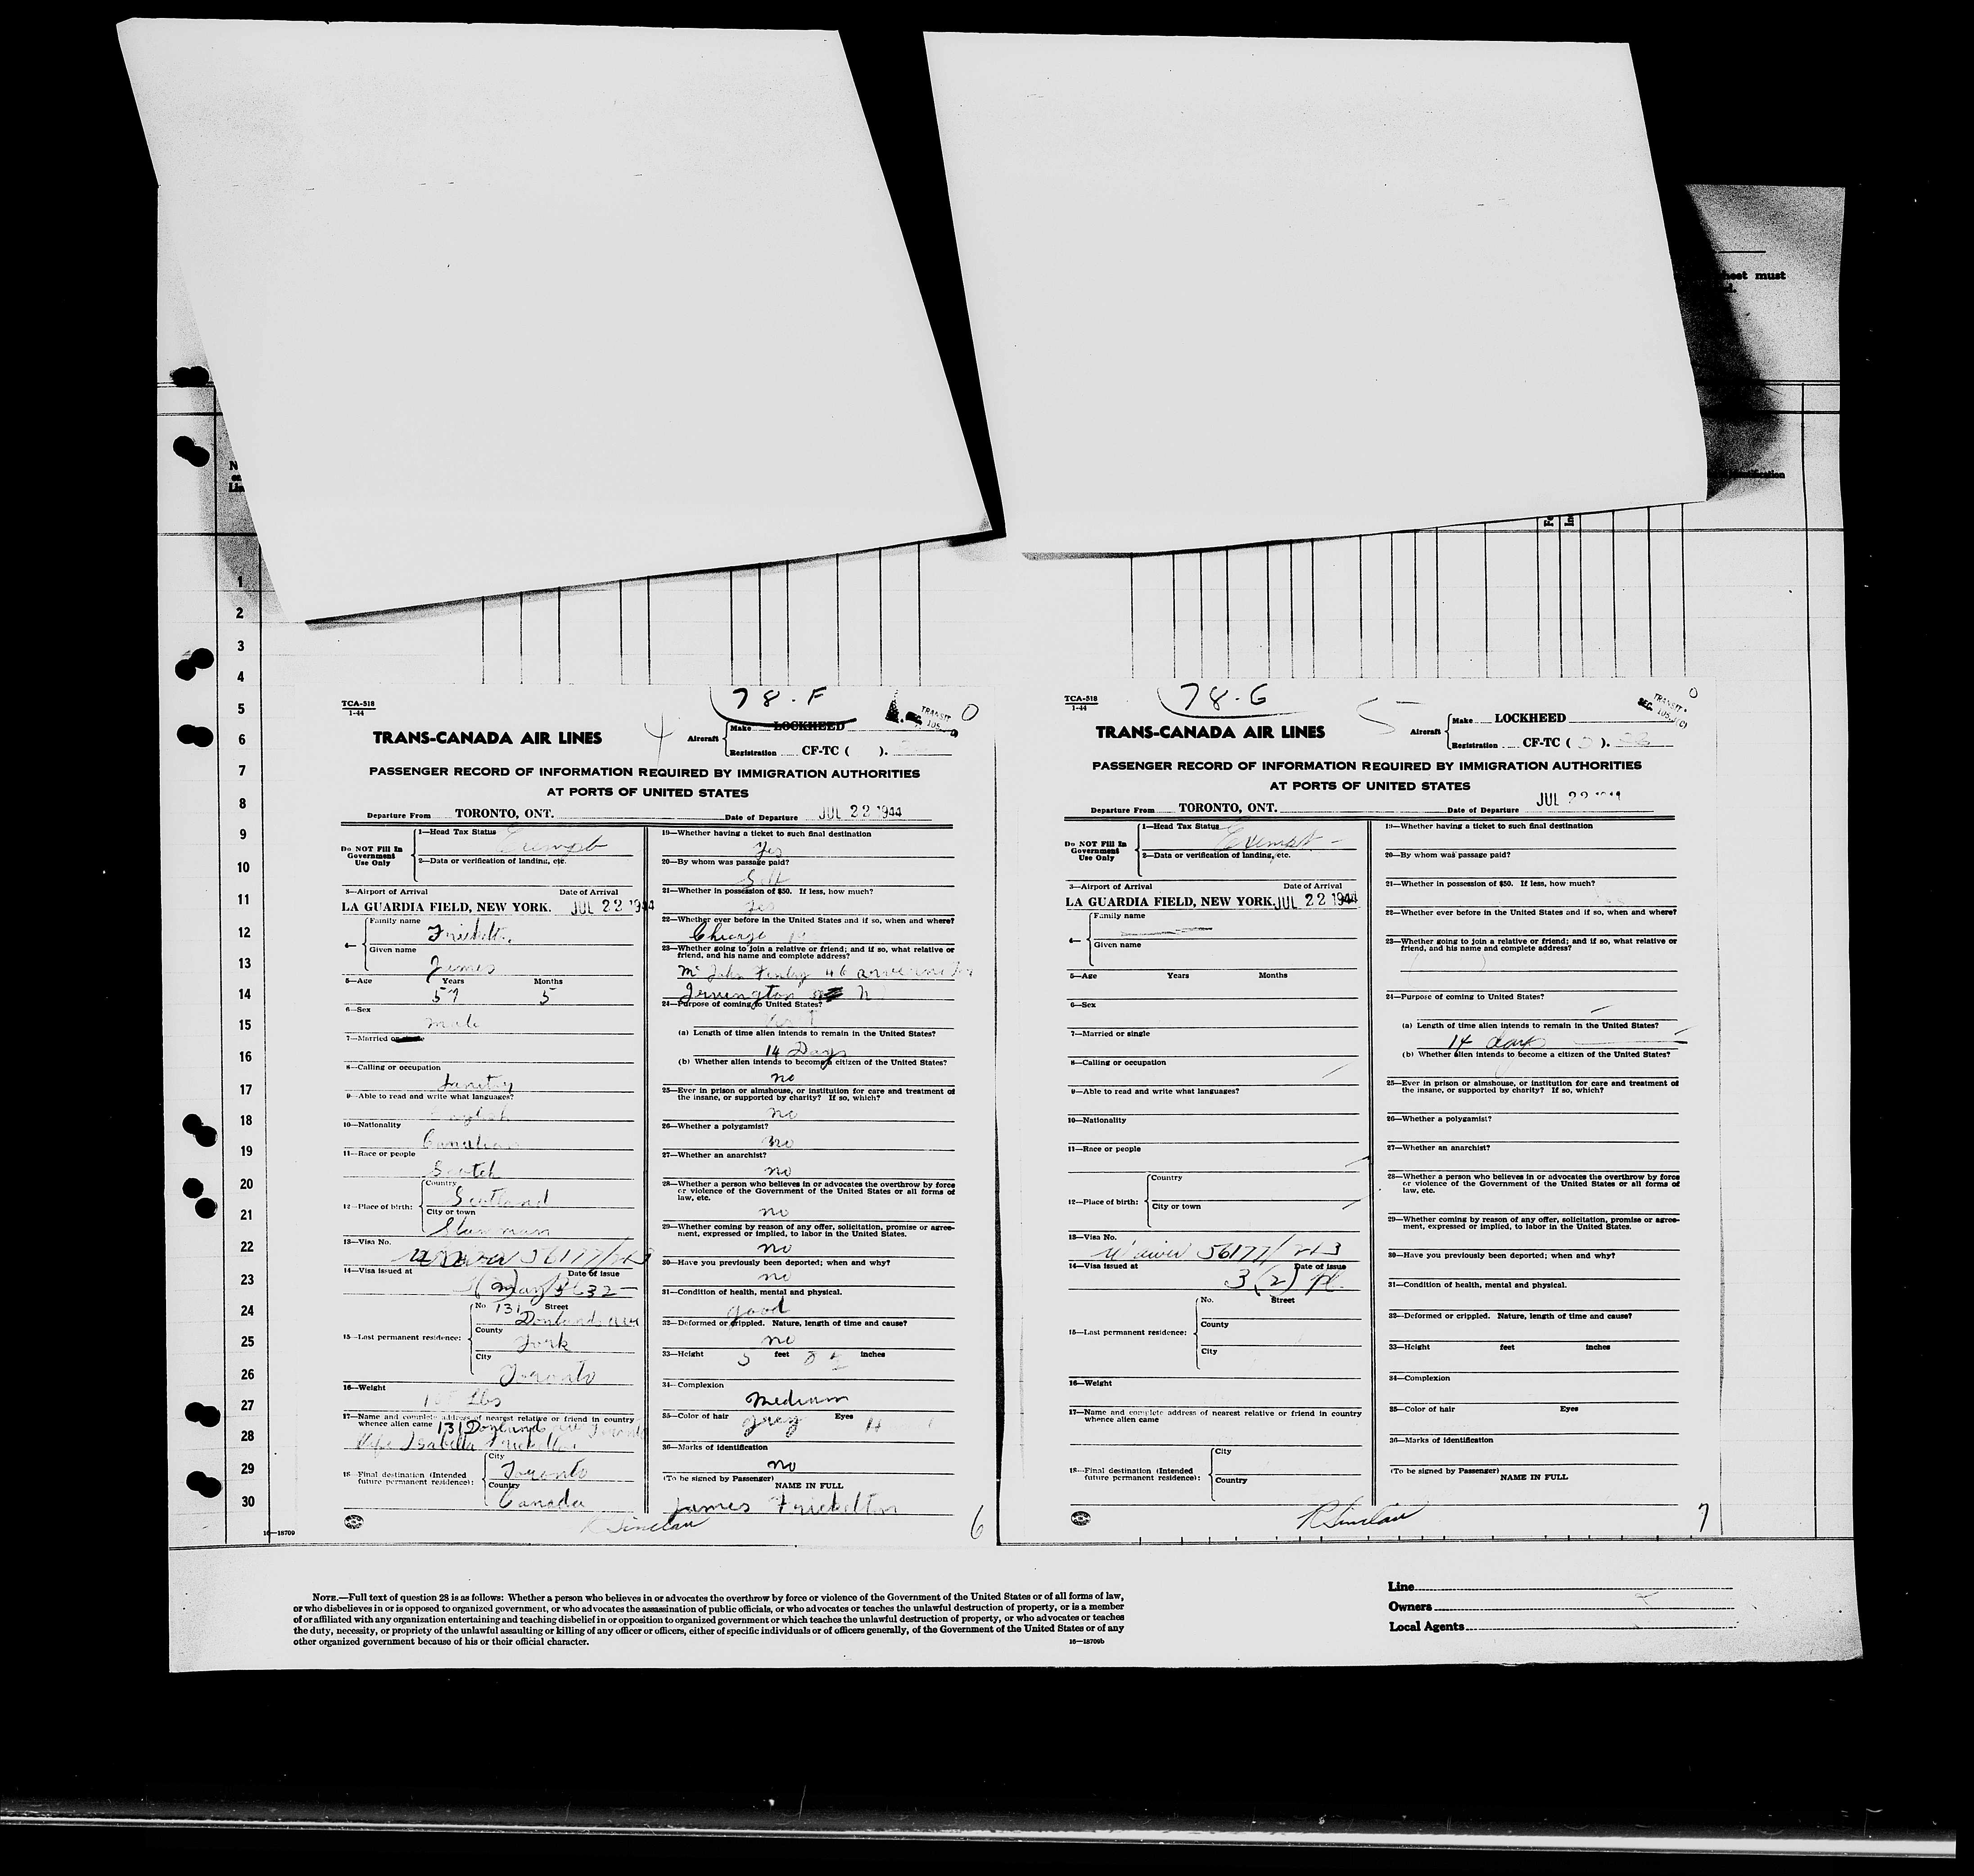 heet must
d.
N
on
Lin
Fe
In
1
2
3
4
5
6
7
8
9
10
11
12
13
14
15
16
17
18
19
20
21
22
23
24
25
26
27
28
29
30
16—18709
78-F
TCA-518
1-44
4
TRANSIT
0
TRANS-CANADA AIR LINES
Aircraft
Make LOCKHEED
Registration CF-TC ( ).
PASSENGER RECORD OF INFORMATION REQUIRED BY IMMIGRATION AUTHORITIES
AT PORTS OF UNITED STATES
Departure From TORONTO, ONT. Date of Departure JUL 22 1944
Do NOT Fill In
Government
Use Only
1—Head Tax Status Exempt
2—Data or verification of landing, etc.
3—Airport of Arrival Date of Arrival
LA GUARDIA FIELD, NEW YORK. JUL 22 1944
4—
Family name
Frickelton
Given name
James
5—Age Years Months
57 5
6—Sex
male
7—Married or single
8—Calling or occupation
9—Able to read and write what languages?
English
10—Nationality
Canadian
11—Race or people
Scotch
12—Place of birth:
Country
Scotland
City or town
13—Visa No.
Waiver 56177/
14—Visa issued at Date of issue
15—Last permanent residence:
No. 131 Street
Donlands ave
County
York
City
Toronto
16—Weight
Lbs
17—Name and complete address of nearest relative or friend in country
whence alien came 131 Donland ave Toronto
Wife Isabella Frickelton
18—Final destination (Intended
future permanent residence):
City
Toronto
Country
Canada
19—Whether having a ticket to such final destination
Yes
20—By whom was passage paid?
Self
21—Whether in possession of $50. If less, how much?
Yes
22—Whether ever before in the United States and if so, when and where?
Chicago
23—Whether going to join a relative or friend; and if so, what relative or
friend, and his name and complete address?
Mr John Finlay 46
Irvington N
24—Purpose of coming to United States?
Visit
(a) Length of time alien intends to remain in the United States?
14 Days
(b) Whether alien intends to become a citizen of the United States?
no
25—Ever in prison or almshouse, or institution for care and treatment of
the insane, or supported by charity? If so, which?
no
26—Whether a polygamist?
no
27—Whether an anarchist?
no
28—Whether a person who believes in or advocates the overthrow by force
or violence of the Government of the United States or all forms of
law, etc.
no
29—Whether coming by reason of any offer, solicitation, promise or agree-
ment, expressed or implied, to labor in the United States.
no
30—Have you previously been deported; when and why?
no
31—Condition of health, mental and physical.
good
32—Deformed or crippled. Nature, length of time and cause?
no
33—Height 5 feet 8 inches
34—Complexion
Medium
35—Color of hair grey Eyes
36—Marks of identification
no
(To be signed by Passenger)
NAME IN FULL
James Frickelton
R Sinclair
6
78-G
TCA-518
1-44
5
TRANSIT
0
TRANS-CANADA AIR LINES
Aircraft
Make LOCKHEED
Registration CF-TC ( ).
PASSENGER RECORD OF INFORMATION REQUIRED BY IMMIGRATION AUTHORITIES
AT PORTS OF UNITED STATES
Departure From TORONTO, ONT. Date of Departure JUL 22 1944
Do NOT Fill In
Government
Use Only
1—Head Tax Status Exempt
2—Data or verification of landing, etc.
3—Airport of Arrival Date of Arrival
LA GUARDIA FIELD, NEW YORK. JUL 22 1944
4—
Family name
Given name
5—Age Years Months
6—Sex
7—Married or single
8—Calling or occupation
9—Able to read and write what languages?
10—Nationality
11—Race or people
12—Place of birth:
Country
City or town
13—Visa No.
Waiver 56177/
14—Visa issued at Date of issue
3 (2)
15—Last permanent residence:
No. Street
County
City
16—Weight
17—Name and complete address of nearest relative or friend in country
whence alien came
18—Final destination (Intended
future permanent residence):
City
Country
19—Whether having a ticket to such final destination
20—By whom was passage paid?
21—Whether in possession of $50. If less, how much?
22—Whether ever before in the United States and if so, when and where?
23—Whether going to join a relative or friend; and if so, what relative or
friend, and his name and complete address?
24—Purpose of coming to United States?
(a) Length of time alien intends to remain in the United States?
14 days
(b) Whether alien intends to become a citizen of the United States?
25—Ever in prison or almshouse, or institution for care and treatment of
the insane, or supported by charity? If so, which?
26—Whether a polygamist?
27—Whether an anarchist?
28—Whether a person who believes in or advocates the overthrow by force
or violence of the Government of the United States or all forms of
law, etc.
29—Whether coming by reason of any offer, solicitation, promise or agree-
ment, expressed or implied, to labor in the United States.
30—Have you previously been deported; when and why?
31—Condition of health, mental and physical.
32—Deformed or crippled. Nature, length of time and cause?
33—Height feet inches
34—Complexion
35—Color of hair Eyes
36—Marks of identification
(To be signed by Passenger)
NAME IN FULL
R Sinclair
7
NOTE.—Full text of question 28 is as follows: Whether a person who believes in or advocates the overthrow by force or violence of the Government of the United States or of all forms of law,
or who disbelieves in or is opposed to organized government, or who advocates the assassination of public officials, or who advocates or teaches the unlawful destruction of property, or is a member
of or affiliated with any organization entertaining and teaching disbelief in or opposition to organized government or which teaches the unlawful destruction of property, or who advocates or teaches
the duty, necessity, or propriety of the unlawful assaulting or killing of any officer or officers, either of specific individuals or of officers generally, of the Government of the United States or of any
other organized government because of his or their official character.
16—18709b
Line
Owners
Local Agents